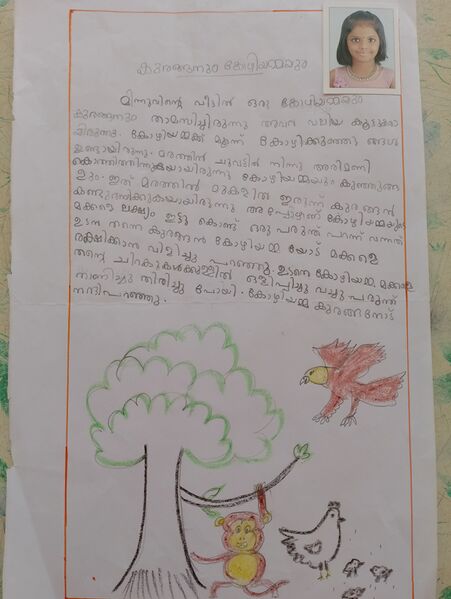 കുരങ്ങനും കോഴിയമ്മയും
മിന്നുവിന്റെ വീട്ടിൽ ഒരു കോഴിയമ്മയും
കുരങ്ങനും താമസിച്ചിരുന്നു അവർ വലിയ കൂട്ടുകാരാ
യിരുന്നു. കോഴിയമ്മക്ക് മൂന്ന് കോഴികുഞ്ഞു ങ്ങൾ
ഉണ്ടായിരുന്നു. മരത്തിൻ ചുവട്ടിൽ നിന്നു അരിമണി
കൊത്തിത്തിന്നുകയായിരുന്നു കോഴിയമ്മയും കുഞ്ഞുങ്ങ
ളും. ഇത് മരത്തിൻ മുകളിൽ ഇരുന്ന് കുരങ്ങൻ
കണ്ടുരസിക്കുകയായിരുന്നു അപ്പോഴാണ് കോഴിയമ്മയുടെ
മക്കളെ ലക്ഷ്യം ഇട്ടു കൊണ്ട് ഒരു പരുന്ത് പറന്ന് വന്നത്
ഉടൻ തന്നെ കുരങ്ങൻ കോഴിയമ്മ യോട് മക്കളെ
രക്ഷിക്കാൻ വിളിച്ചു പറഞ്ഞു. ഉടനെ കോഴിയമ്മ മക്കളെ
തന്റെ ചിറകുകൾക്കുള്ളിൽ ഒളിപ്പിച്ചു വച്ചു പരുന്ത്
നാണിച്ചു തിരിച്ചു പോയി. കോഴിയമ്മ കുരങ്ങനോട്
നന്ദിപറഞ്ഞു.